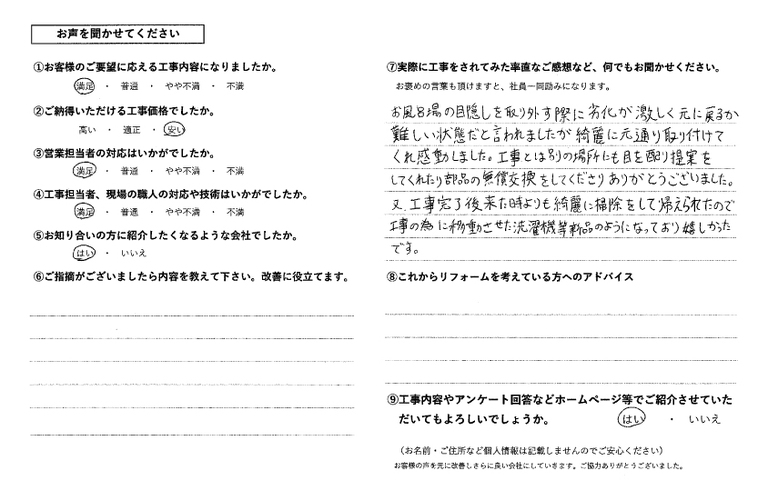 お声を聞かせてください
①お客様のご要望に応える工事内容になりましたか。
満足 ・ 普通 ・ やや不満 ・ 不満
②ご納得いただける工事価格でしたか。
高い ・ 適正 ・ 安い
③営業担当者の対応はいかがでしたか。
満足 ・ 普通 ・ やや不満 ・ 不満
④工事担当者、現場の職人の対応や技術はいかがでしたか。
満足 ・ 普通 ・ やや不満 ・ 不満
⑤お知り合いの方に紹介したくなるような会社でしたか。
はい ・ いいえ
⑥ご指摘がございましたら内容を教えて下さい。改善に役立てます。
⑦実際に工事をされてみた率直なご感想など、何でもお聞かせください。
お褒めの言葉も頂けますと、社員一同励みになります。
お風呂場の目隠しを取り外す際に劣化が激しく元に戻るか
難しい状態だと言われましたが綺麗に元通り取り付けて
くれ感動しました。工事とは別の場所にも目を配り提案を
してくれたり部品の無償交換をしてくださりありがとうございました。
又、工事完了後来た時よりも綺麗に掃除をして帰えられたので
工事の為に移動させた洗濯機等新品のようになっており嬉しかった
です。
⑧これからリフォームを考えている方へのアドバイス
⑨工事内容やアンケート回答などホームページ等でご紹介させていた
だいてもよろしいでしょうか。 はい ・ いいえ
（お名前・ご住所など個人情報は記載しませんのでご安心ください）
お客様の声を元に改善しさらに良い会社にしていきます。ご協力ありがとうございました。